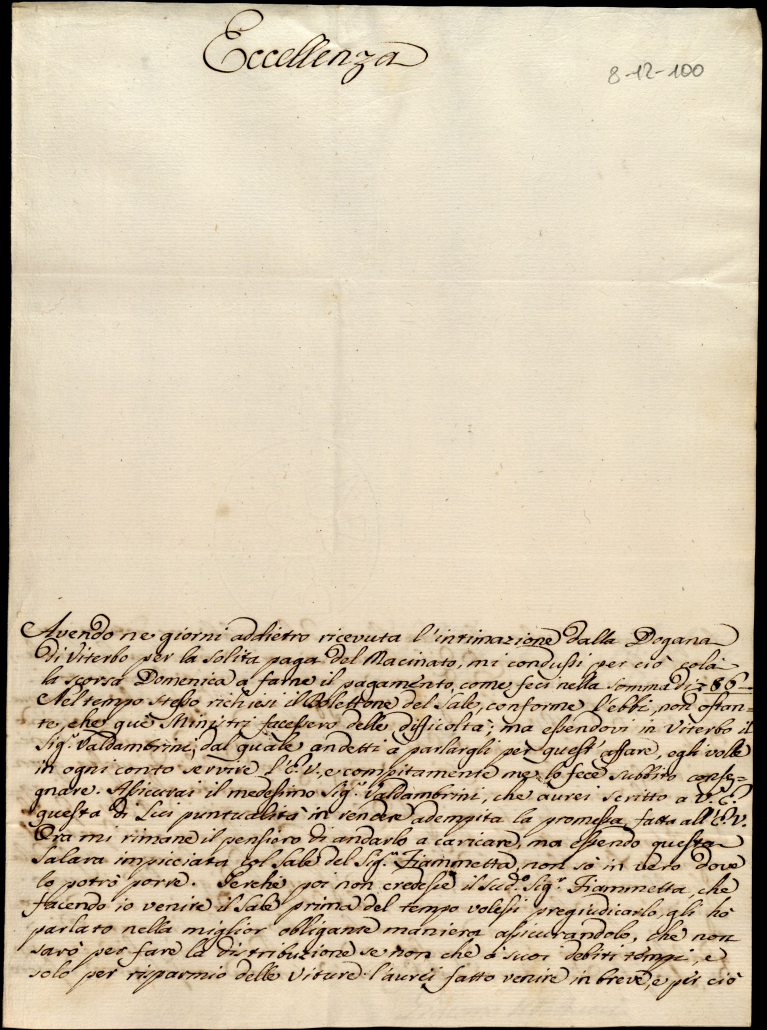 Eccellenza
8-12-100
Avendo ne giorni addietro ricevuta l'intimazione dalla Dogana
di Viterbo per la solita paga del Macinato, mi condussi per ciò colà
la scorsa Domenica a farne il pagamento, come feci nella somma di 86
Nel tempo stesso richiesi il Bolettone del Sale, conforme l'ebbi, non ostan-
te, che que Ministri facessero delle difficoltà; ma essendovi in Viterbo il
Sig.r Valdambrini, dal quale andetti a parlargli per quest'affare, egli volle
in ogni conto servire l'E.V. e compitamente me lo fece subbito conse-
gnare. Assicurai il medesimo Sig.r Valdambrini, che aurei scritto a V.E.
questa di Lui puntualità in rendere adempita la promessa fatta all'E.V.
Ora mi rimane il pensiero di andarlo a caricare, ma essendo questa
Salara impicciata col Sale del Sig.r Fiammetta, non sò in vero dove
lo potrò porre. Perche poi non credesse il sud.o Sig.r Fiammetta, che
facendo io venire il Sale prima del tempo volessi pregiudicarlo, gli hò
parlato nella miglior obligante maniera assicurandolo, che non
sarò per fare la distribuzione se non che à suoi debiti tempi, e
solo per risparmio delle Viture l'aurei fatto venire in breve, e per ciò